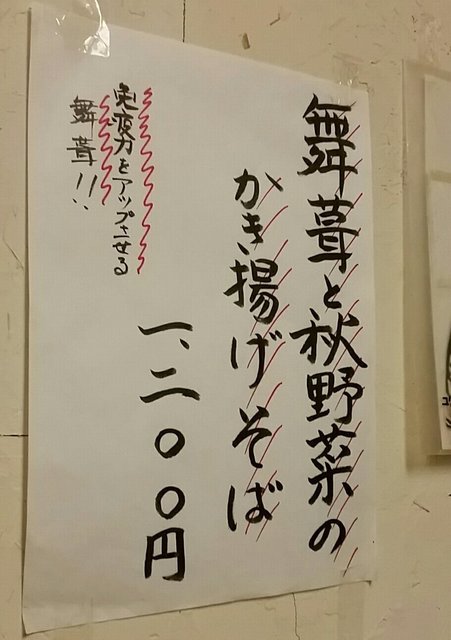 舞茸と秋野菜の
かき揚げそば
一、二〇〇円
免疫力をアップさせる
舞茸!!